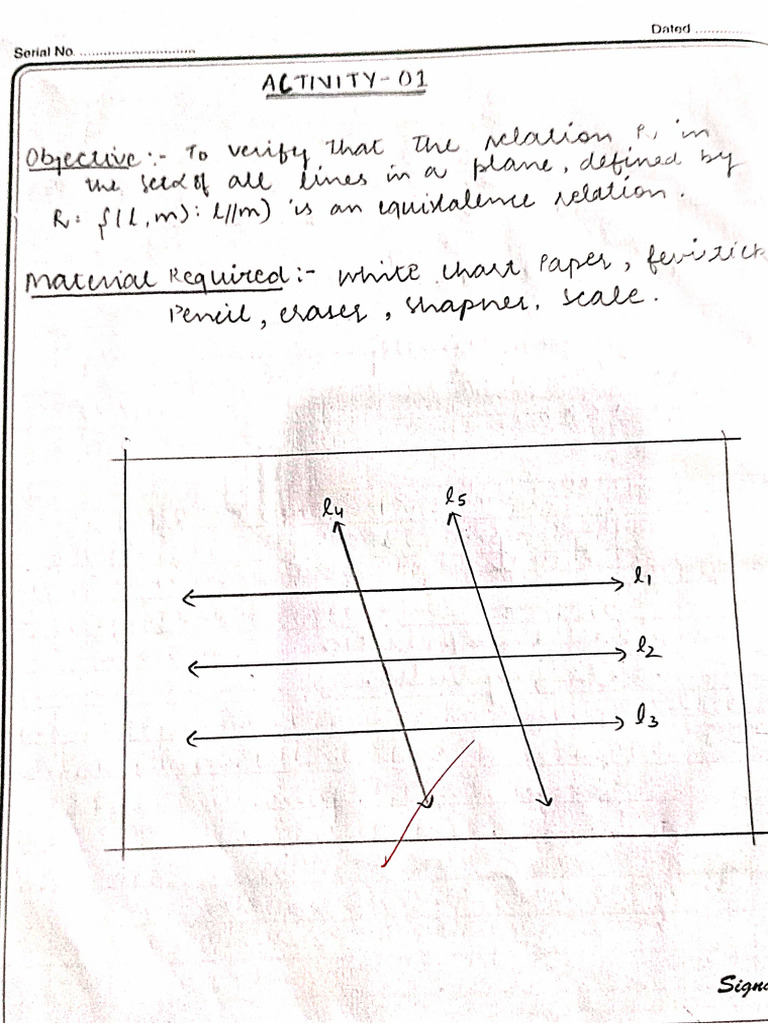 Serial No.
Dated
ACTIVITY-01
Objective:- To verify that the relation R, in
the seed of all lines in a plane, defined by
R: {(l,m): l//m) is an equivalence relation.
Material Required:- White chart Paper, fevistick
Pencil, eraser, shapner, scale.
l4 l5
l1
l2
l3